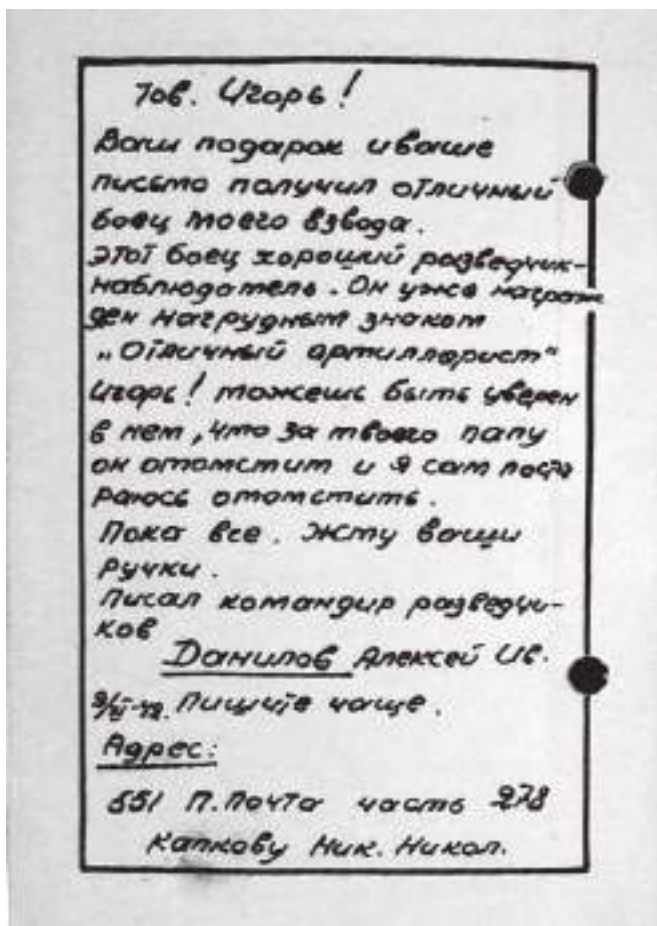 Тов. Игорь!
Ваш подарок и ваше
письмо получил отличный
боец моего взвода.
Этот боец хороший разведчик-
наблюдатель. Он уже награж
ден нагрудным знаком
„Отличный артиллерист"
Игорь! можешь быть уверен
в нем, что за твоего папу
он отомстит и я сам поста
раюсь отомстить.
Пока все. Жму ваши
ручки.
Писал командир разведчи-
ков
Данилов Алексей Ив.
Пишите чаще.
Адрес:
551 П. Почта часть 278
Капкову Ник. Никол.